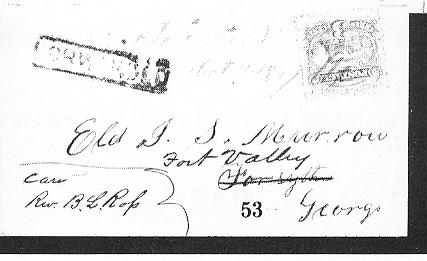 FORWARDED
Eld J. S. Murrow
Fort Valley
Forsyth
care
Rev. B. L. Ross
53
Georgi